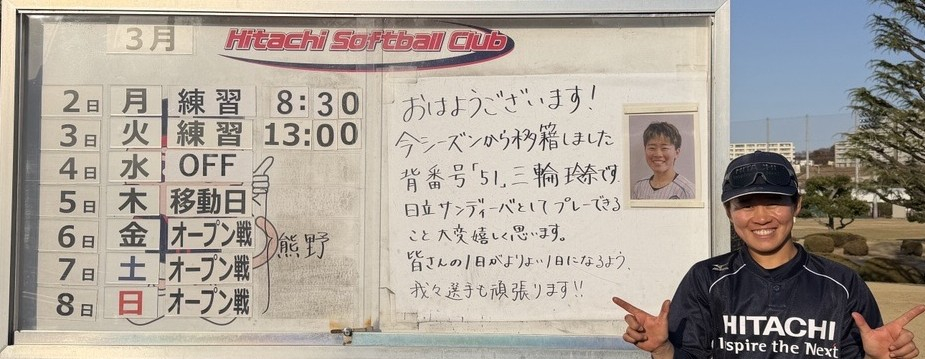 3月
Hitachi Softball Club
2日 月 練習 8:30
3日 火 練習 13:00
4日 水 OFF
5日 木 移動日
6日 金 オープン戦
7日 土 オープン戦
8日 日 オープン戦
熊野
おはようございます!
今シーズンから移籍しました
背番号「51」三輪玲奈です
日立サンディーバとしてプレーできる
こと大変嬉しく思います。
皆さんの1日がよりよい1日になるよう、
我々選手も頑張ります!!
HITACHI
Inspire the Next